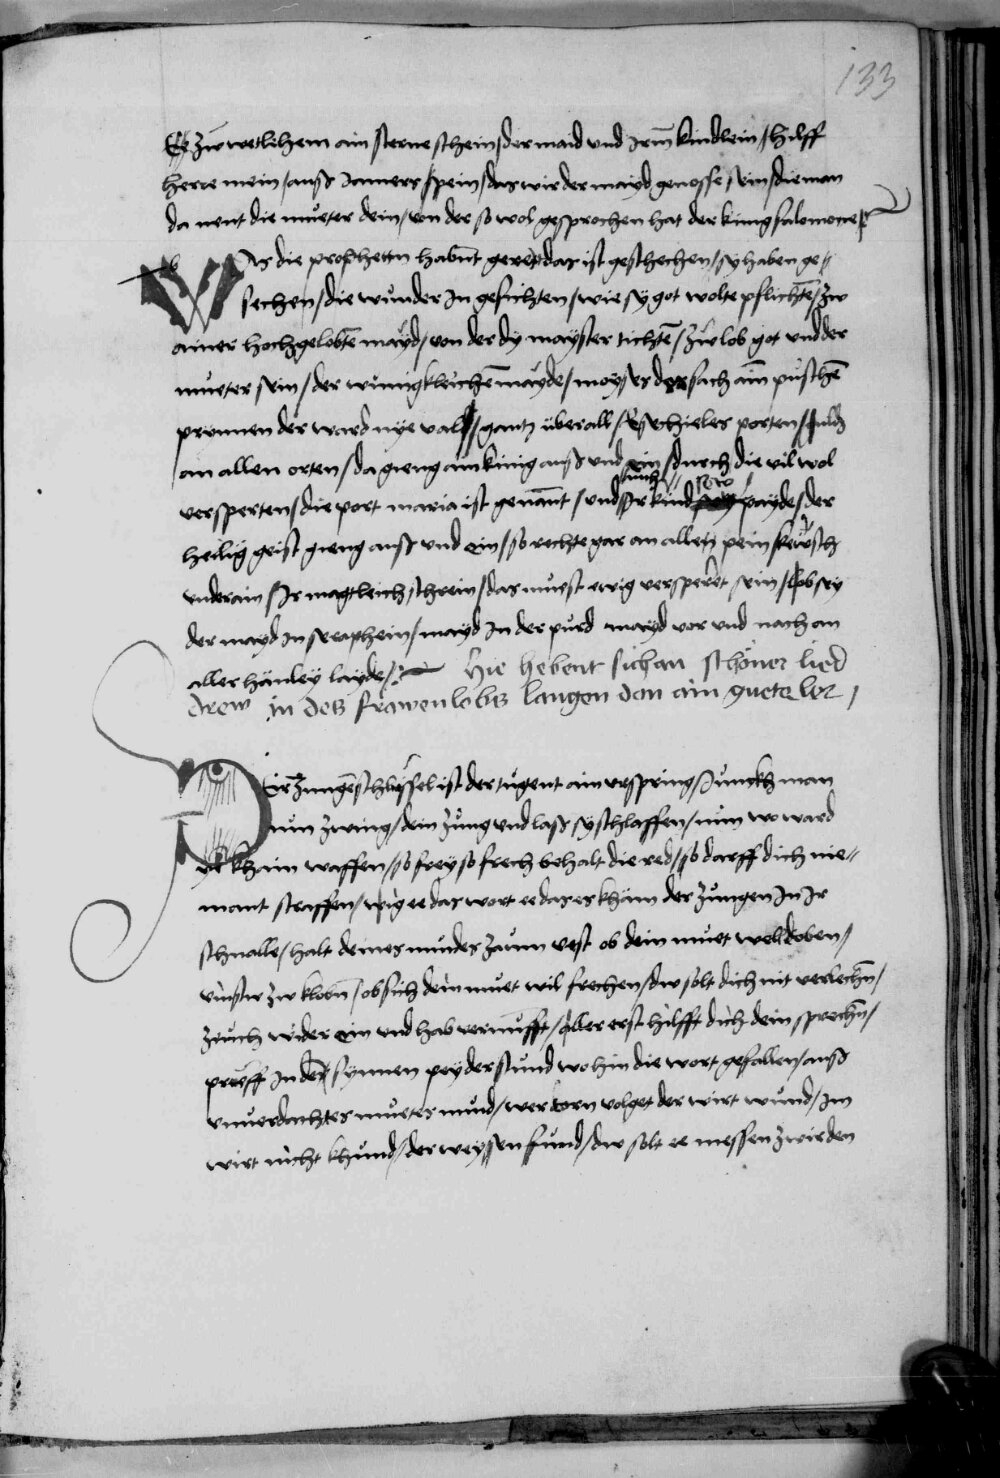 133
Es zw wetlehem ain sterne schein / der maid vnd irm̄ kindlein / hilff
herre mein / auß iamers pein / das wir der mayd genosse sein / die man
da nent die mueter dein / von der so wol gesprochen hat der kunig salomone
Was die prophettn habnt geret das ist geschechen / sy haben ge⸗
sechen / die wunder in gesichten / wie sy got wolte pflichtē / zw
ainer hochgelobtē mayd / von der dy mayster tichtē / zw lob got vnd der
mueter sein / der wunigkleichē mayde / moyses der sach ain puschē
prinnen der ward nye val / gantz überall / esechieles porten / guldj
an allen orten / da gieng ain kinig auß vnd ein / durch die vil wol
versperten / die port maria ist genant / vnd auch ir kind sew payde / der
heilig geist gieng auß vnd ein / so rechte gar an allen pein kewsch
vnd rain / ir magtleich schrein / das muest ewig versperet sein / lob sey
der mayd in seraphein / mayd in der purd mayd vor vnd nach an
aller hanley layde / Hie hebent sich an schöner lied
drew in des frawenlobs langen don ain guete ler /
Dir zungē schlussel ist der tugent ain vrspring / Junckh man
nun zwing / dein zung vnd laß sy schlaffen / nim wo ward
ye khain waffen / so frey so frech behalt die red / so darff dich nie⸗
mant straffen / wig ee das wort ee das es kham der zungen in ir
schnalle / halt deines mundes zaum vest ob dein muet well toben /
zw klobn / ob sich dein muet wil frechen / dw solt dich nit verlechn /
zeuch wider ein vnd hab vernufft / aller erst hilfft dich dein sprechn /
prueff in den synnen pey der stund wo hin die wort gefallen / auß
vnuerdachtes muetes mund / wer torn volget der wirt wund / im
wirt nicht khund / der weysen fund / dw solt ee messen zwir den